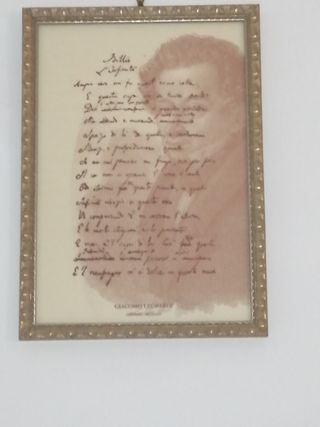 Idillio
L'Infinito
Sempre caro mi fu quest'ermo colle
E questa siepe che da tanta parte
Ma sedendo e mirando
Spazio di là da quella, e sovrumani
Silenzi, e profondissima quiete
Io nel pensier mi fingo, ove per poco
Il cor non si spaura. E come il vento
Odo stormir tra queste piante, io quello
Infinito silenzio a questa voce
Vo comparando: e mi sovvien l'eterno
E le morte stagioni, e la presente
E viva, e 'l suon di lei. Così questa
E 'l naufragar m'è dolce in questo mare
GIACOMO LEOPARDI